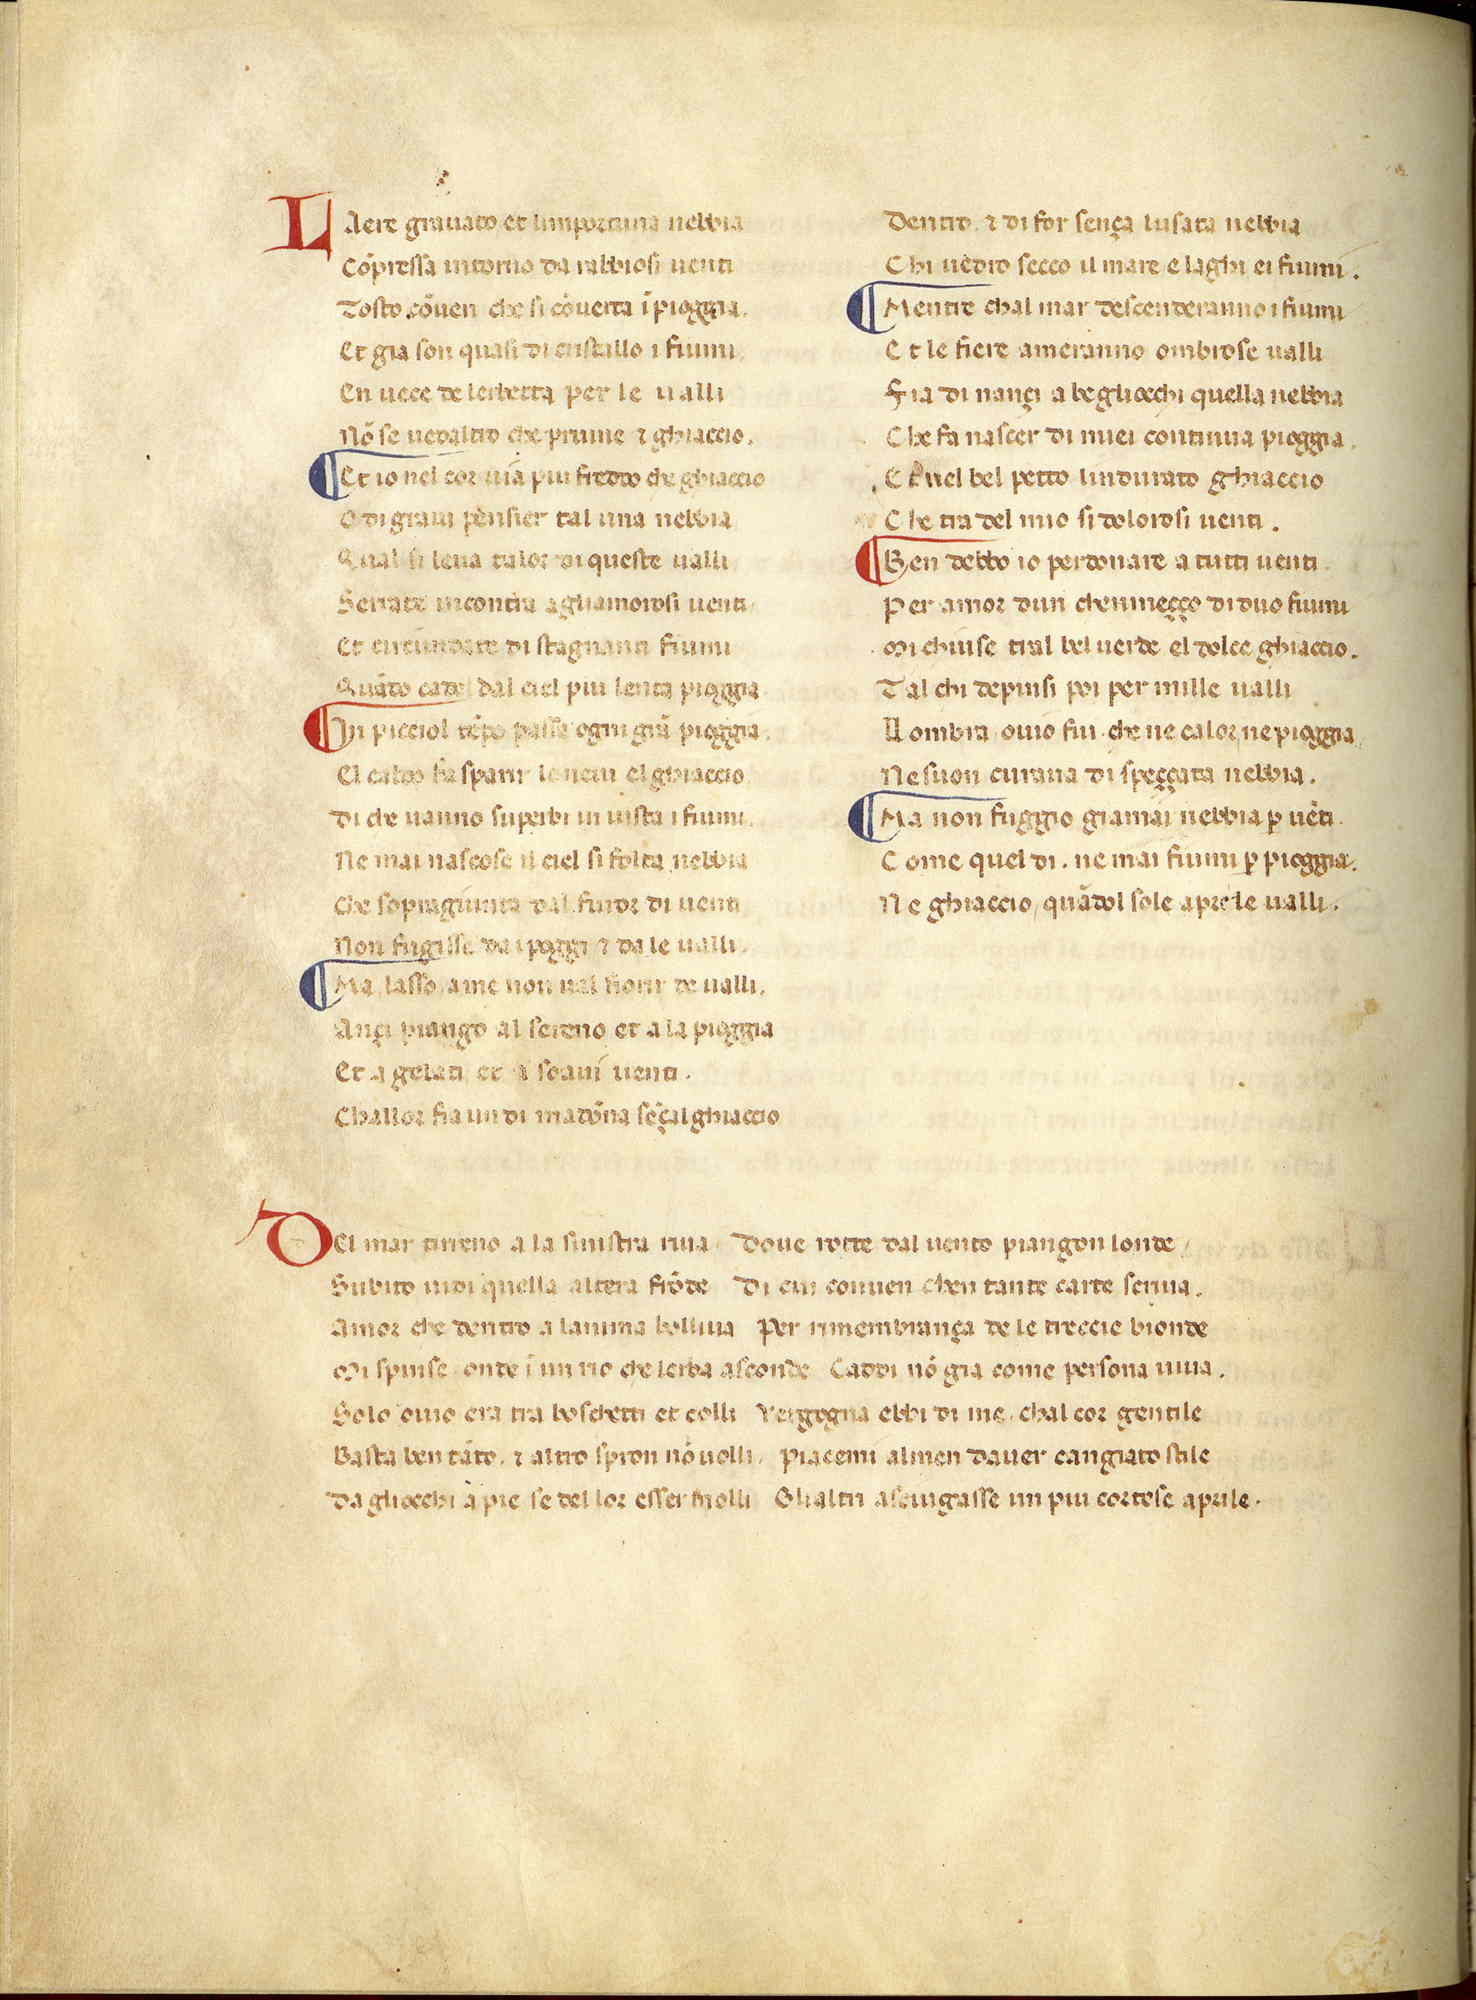 LAere grauato et limportuna nebbia
Cōpressa intorno da rabbiosi uenti
Tosto cōuen che si cōuerta ī pioggia.
Et gia son quasi di cristallo i fiumi.
En uece de lerbetta per le ualli
Nō se uedaltro che pruine ⁊ ghiaccio.
Et io nel cor uia piu freddo che ghiaccio
O di graui pēnsier tal una nebbia
Qual si leua talor di queste ualli
Serrate incontra agliamorosi uenti
Et circundate di stagnanti fiumi
Quādo cade dal ciel piu lenta pioggia
In picciol tēpo passa ogni grā pioggia.
El caldo fa sparir le neui el ghiaccio
Di che uanno superbi in uista i fiumi.
Ne mai nascose il ciel si folta nebbia
Che sopragiunta dal furor di uenti
Non fugisse da i poggi ⁊ da le ualli.
Ma lasso a me non ual fiorir de ualli.
Ançi piango al sereno et a la pioggia
Et a gelati et a soaui uenti.
Challor fia un di madōna sēçal ghiaccio
Dentro. ⁊ di for sença lusata nebbia
Chi uedro secco il mare e laghi ei fiumi.
Mentre chal mar descenderanno i fiumi
Et le fiere ameranno ombrose ualli
Fia dinançi a begliocchi quella nebbia
Che fa nascer di miei continua pioggia.
Et nel bel petto lindurato ghiaccio
Che tra del mio si dolorosi uenti.
Ben debbo io perdonare a tutti uenti
Per amor dun chenmeçço di duo fiumi
Mi chiuse tral bel uerde el dolce ghiaccio.
Tal chi depinsi poi per mille ualli
Lombra ouio fui. che ne calor ne pioggia
Ne suon curaua di speççata nebbia.
Ma non fuggio giamai nebbia ꝑ uēti.
Come quel di. ne mai fiumi ꝑ pioggia.
Ne ghiaccio quādol sole apre le ualli.
DEl mar tirreno a la sinistra riua Doue rotte dal uento piangon londe
Subito uidi quella altera frōde Di cui conuen chen tante carte scriua.
Amor che dentro a lanima bolliua Per rimembrança de le treccie bionde
Mi spinse. onde ī un rio che lerba asconde Caddi nō gia come persona uiua.
Solo ouio era tra boschetti et colli Vergogna ebbi di me. chal cor gentile
Basta ben tāto. ⁊ altro spron nō uolli. Piacemi almen dauer cangiato stile
Da gliocchi a pie se del lor esser molli Glialtri asciugasse un piu cortese aprile.